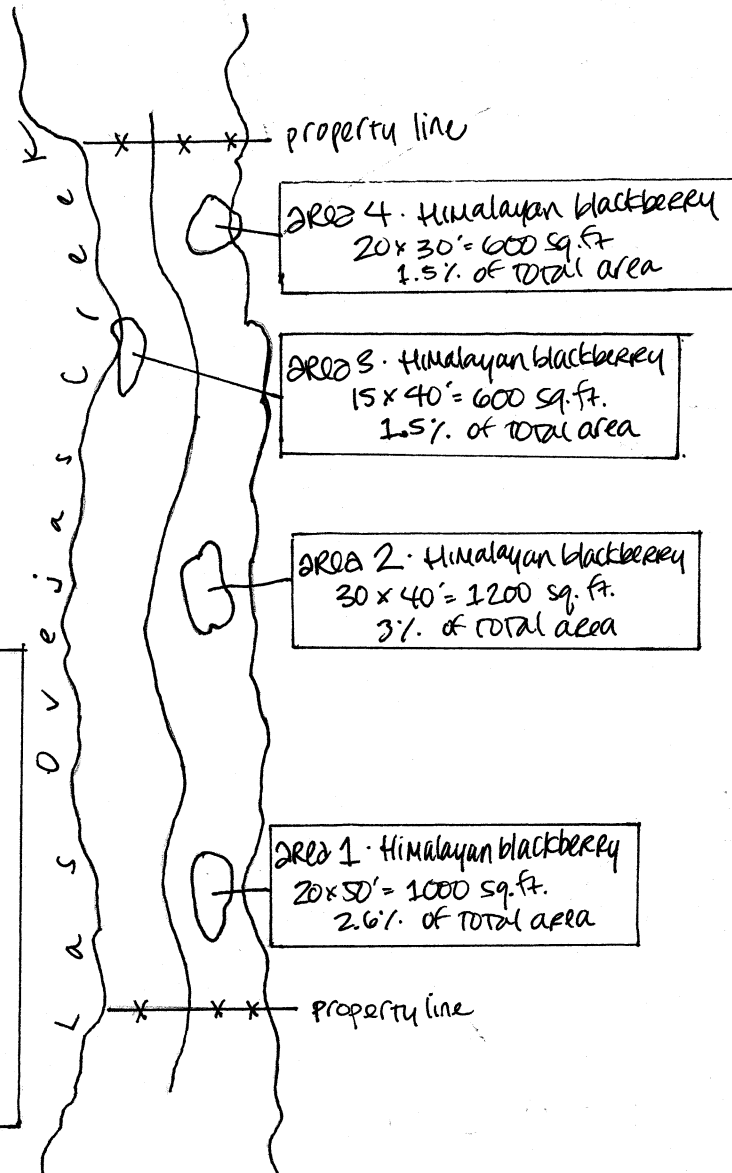 property line
area 4 · Himalayan blackberry
20 x 30' = 600 sq. ft
1.5% of Total area
area 3 · Himalayan blackberry
15 x 40' = 600 sq. ft.
1.5% of Total area
area 2 · Himalayan blackberry
30 x 40' = 1200 sq. ft.
3% of Total area
area 1 · Himalayan blackberry
20 x 50' = 1000 sq. ft.
2.6% of Total area
property line
Las Ovejas Creek